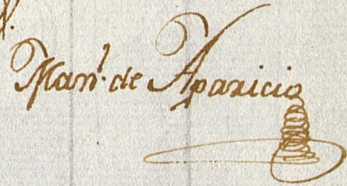 Man.l de Aparicio